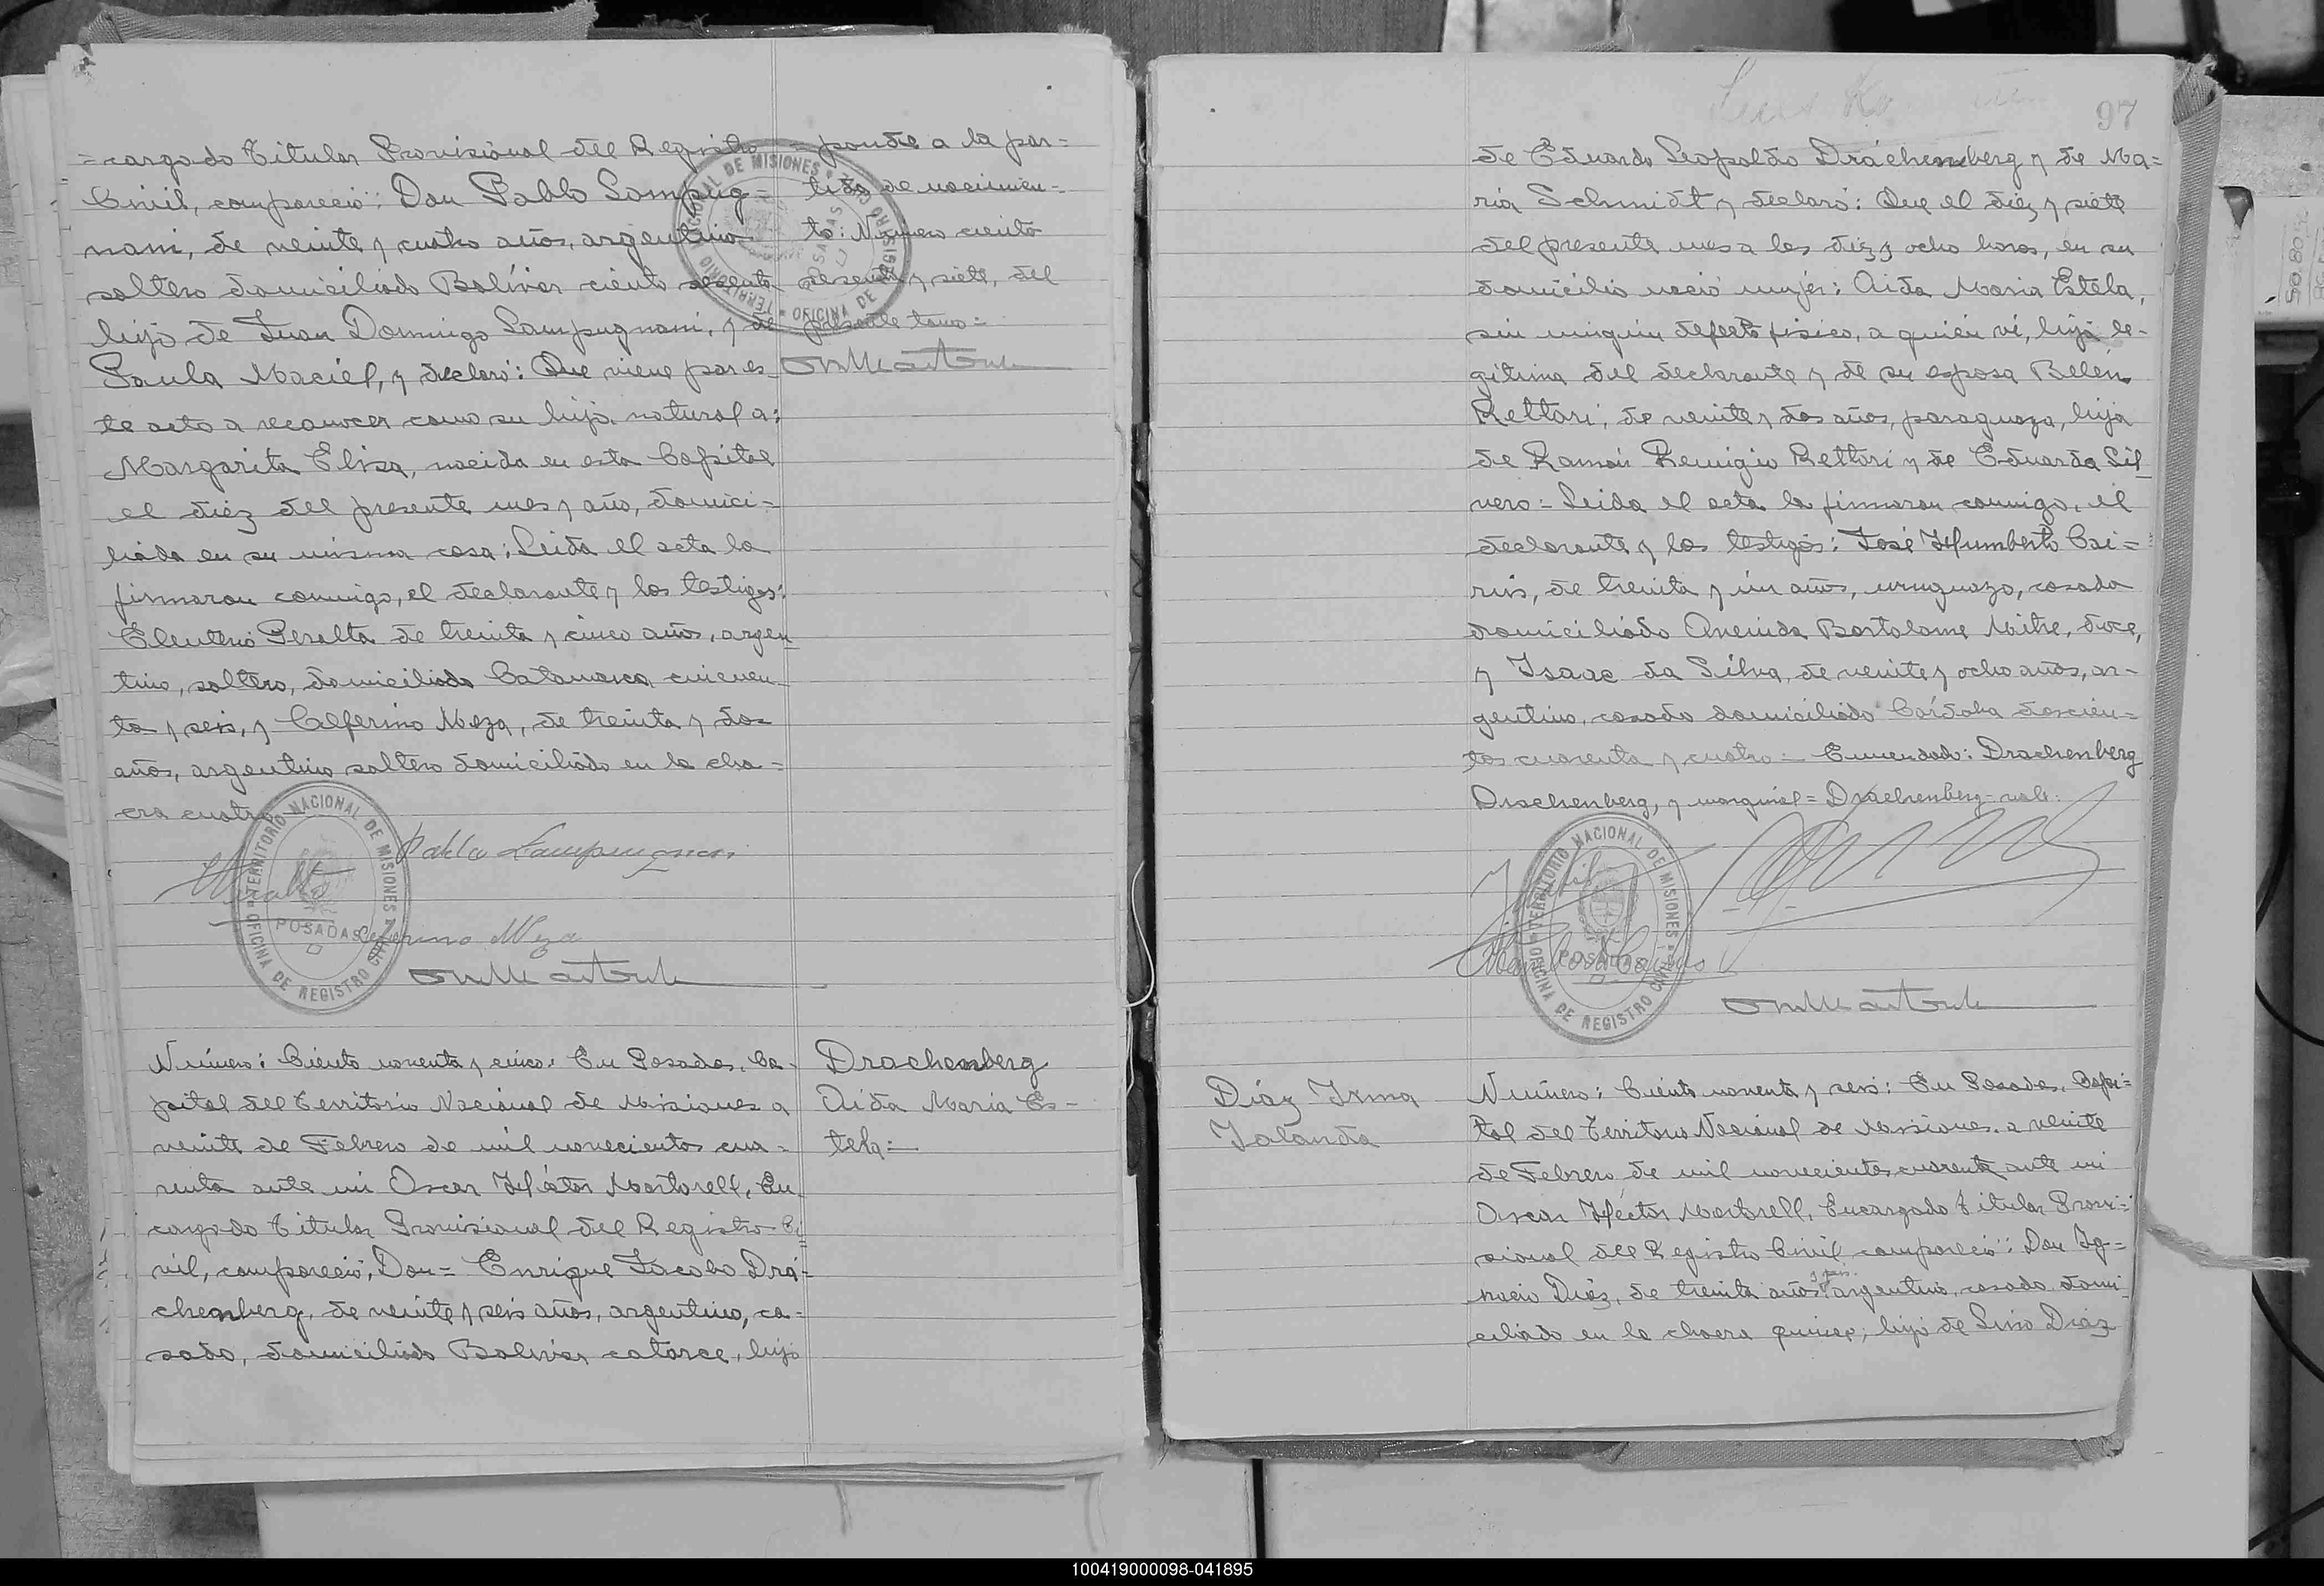 =cargado Titular Provisional del Registro
Civil, compareció: Don Pablo Lampug=
nani, de veinte y cuatro años, argentino
soltero domiciliado Bolívar ciento sesenta
hijo de Juan Domingo Lampugnani, y de
Paula Maciel, y declaró: Que viene por es_
te acto a reconocer como su hija natural a:
Margarita Elisa, nacida en esta Capital
el diez del presente mes y año, domici=
liada en su misma casa: Leida el acta la
firmaron conmigo, el declarante y los testigos:
Eleuterio Peralta de treinta y cinco años, argen
tino, soltero, domiciliado Catamarca cincuen_
ta y seis, y Ceferino Meza, de treinta y dos
años, argentino soltero domiciliado en la cha=
cra cuatro
=ponde a la par=
tida de nacimien=
to: Número ciento
sesenta y siete, del
presente tomo=
Pablo Lampugnani
Ceferino Meza
TERRITORIO NACIONAL DE MISIONES
OFICINA DE REGISTRO CIVIL
POSADAS
Número: Ciento noventa y cinco: En Posadas, Ca-
pital del Territorio Nacional de Misiones a
veinte de Febrero de mil novecientos cua=
renta ante mi Oscar Héctor Martorell, En_
cargado Titular Provisional del Registro Ci
vil, compareció, Don= Enrique Jacobo Drá=
chenberg, de veinte y seis años, argentino, ca=
sado, domiciliado Bolívar catorce, hijo
Drachenberg
Aida Maria Es-
tela=
97
de Eduardo Leopoldo Dráchenberg y de Ma=
ría Schmidt y declaró: Que el diez y siete
del presente mes a las diez y ocho horas, en su
domicilio nació mujer: Aida Maria Estela,
sin ningún defecto físico, a quién ví, hija le-
gitima del declarante y de su esposa Belén
Rettori, de veinte y dos años, paraguaya, hija
de Ramón Remigio Rettori y de Eduarda Sil_
vero= Leida el acta la firmaron conmigo, el
declarante y los testigos: José Humberto Cai=
ris, de treinta y un años, uruguayo, casado
domiciliado Avenida Bartolome Mitre, doce,
y Isaac da Silva, de veinte y ocho años, ar-
gentino, casado domiciliado Córdoba doscien=
tos cuarenta y cuatro= Enmendado: Drachenberg
Drachenberg, y marginal= Drachenberg= vale.
TERRITORIO NACIONAL DE MISIONES
OFICINA DE REGISTRO CIVIL
POSADAS
Díaz Irma
Jalanda
Número: Ciento noventa y seis: En Posadas, Capi=
tal del Territorio Nacional de Misiones, a veinte
de Febrero de mil novecientos cuarenta ante mi
Oscar Héctor Martorell, Encargado Titular Provi=
sional del Registro Civil compareció: Don Ig=
nacio Díaz, de treinta años y seis argentino, casado domi_
ciliado en la chacra quince, hijo de Lino Díaz
100419000098-041895